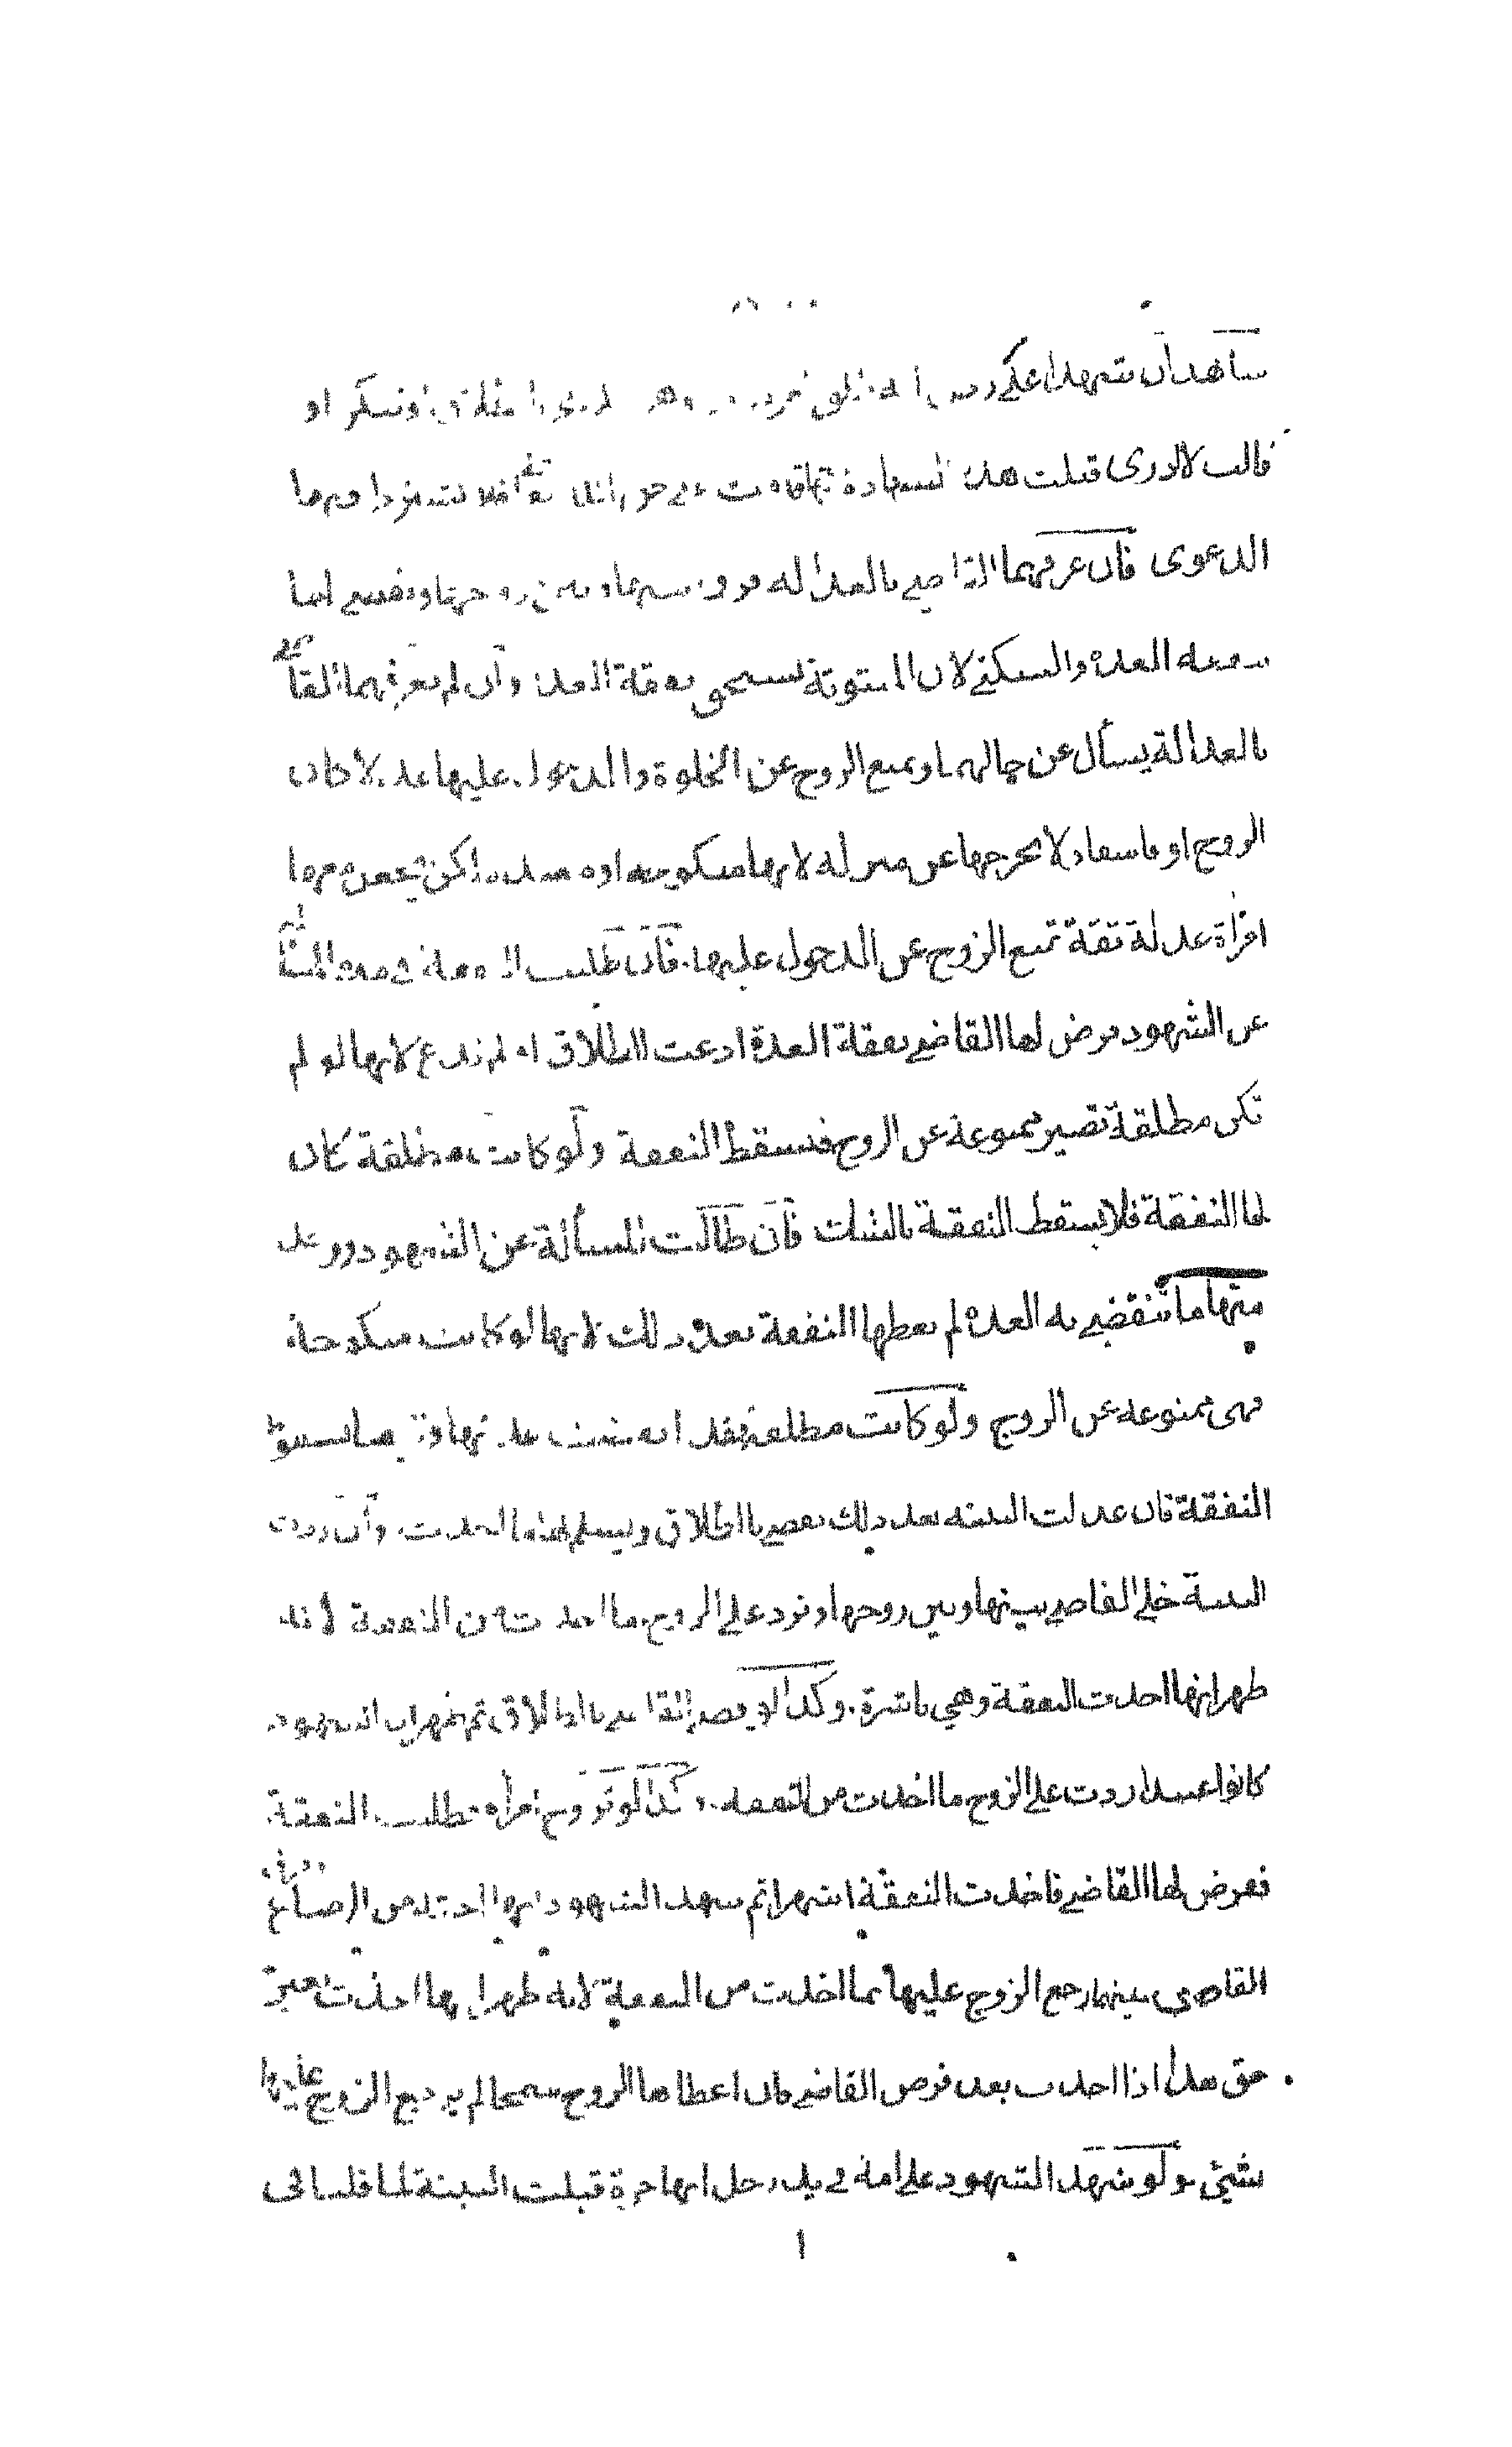 شاهدان شهدا على رجل انه طلق او تنكر او
قالت لا ادرى قبلت هذه الشهادة فلا يشترط فيها
الدعوى فان عرفهما القاضي بالعدالة فرق بينهما وبين زوجها ويقضي لها
بنفقة العدة والسكنى لان المبتوتة تستحق نفقة العدة وان لم يعرفهما القا
بالعدالة يسأل عن حالهما ويمنع الزوج عن الخلوة والدخول عليها عدلا كان
الزوج او فاسقا ولا يخرجها عن منزله لانها منكوحته او معتدته لكن يجعل معها
امرأة عدلة ثقة تمنع الزوج عن الدخول عليها فان طلبت النفقة في مدة المسألة
عن الشهود فرض لها القاضي نفقة العدة ادعت الطلاق او لم تدع لانها لو لم
تكن مطلقة تصير ممنوعة عن الزوج فتسقط النفقة ولو كانت مطلقة كان
لها النفقة فلا يسقط النفقة بالشك فان طالت المسألة عن الشهود ووجد
منها ما تنقضي به العدة لم يعطها النفقة بعد ذلك لانها لو كانت منكوحة
فهى ممنوعة عن الزوج ولو كانت مطلقة فقد انقضت عدتها وبها تسقط
النفقة فان عدلت البينة بعد ذلك يقضي بالطلاق ويسلم لها ما اخذت وان ردت
البينة خلى القاضي بينها وبين زوجها وترد على الزوج ما اخذت من النفقة لانه
ظهر انها اخذت النفقة وهي ناشزة وكذا لو قضى القاضي بالطلاق ثم ظهر ان الشهود
كانوا عبيدا ردت على الزوج ما اخذت من النفقة وكذا لو تزوج امرأة تطلب النفقة
ففرض لها القاضي فاخذت النفقة اشهرا ثم شهد الشهود انها اخته من الرضاع
القاضي بينهما رجع الزوج عليها بما اخذت من النفقة لانه ظهر انها اخذت بغير
حق هذا اذا اخذت بعد فرض القاضي فان اعطاها الزوج سمحا لم يرجع الزوج عليها
بشيئ ولو شهد الشهود على امة في يد رجل انها حرة قبلت البينة لما قلنا في